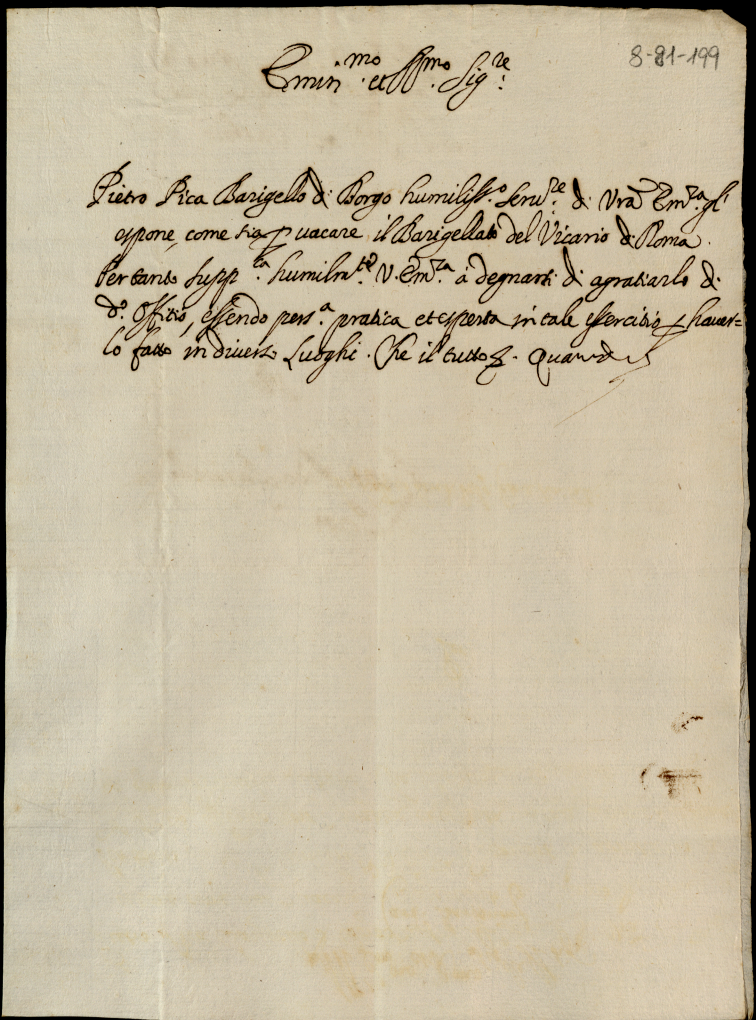 8-81-199
Emin.mo et R.mo Sig.re
Pietro Pica Barigello di Borgo humiliss.o Serv.re di Vra Em.za gl'
espone, come sta p vacare il Barigellato del Vicario di Roma.
Pertanto supp.ca humilm.te V. Em.za à degnarsi di agratiarlo di
d.o Offitio, essendo pers.a pratica et esperta in tale essercitio p haver=
lo fatto in diversi Luoghi. Che il tutto &. Quam d